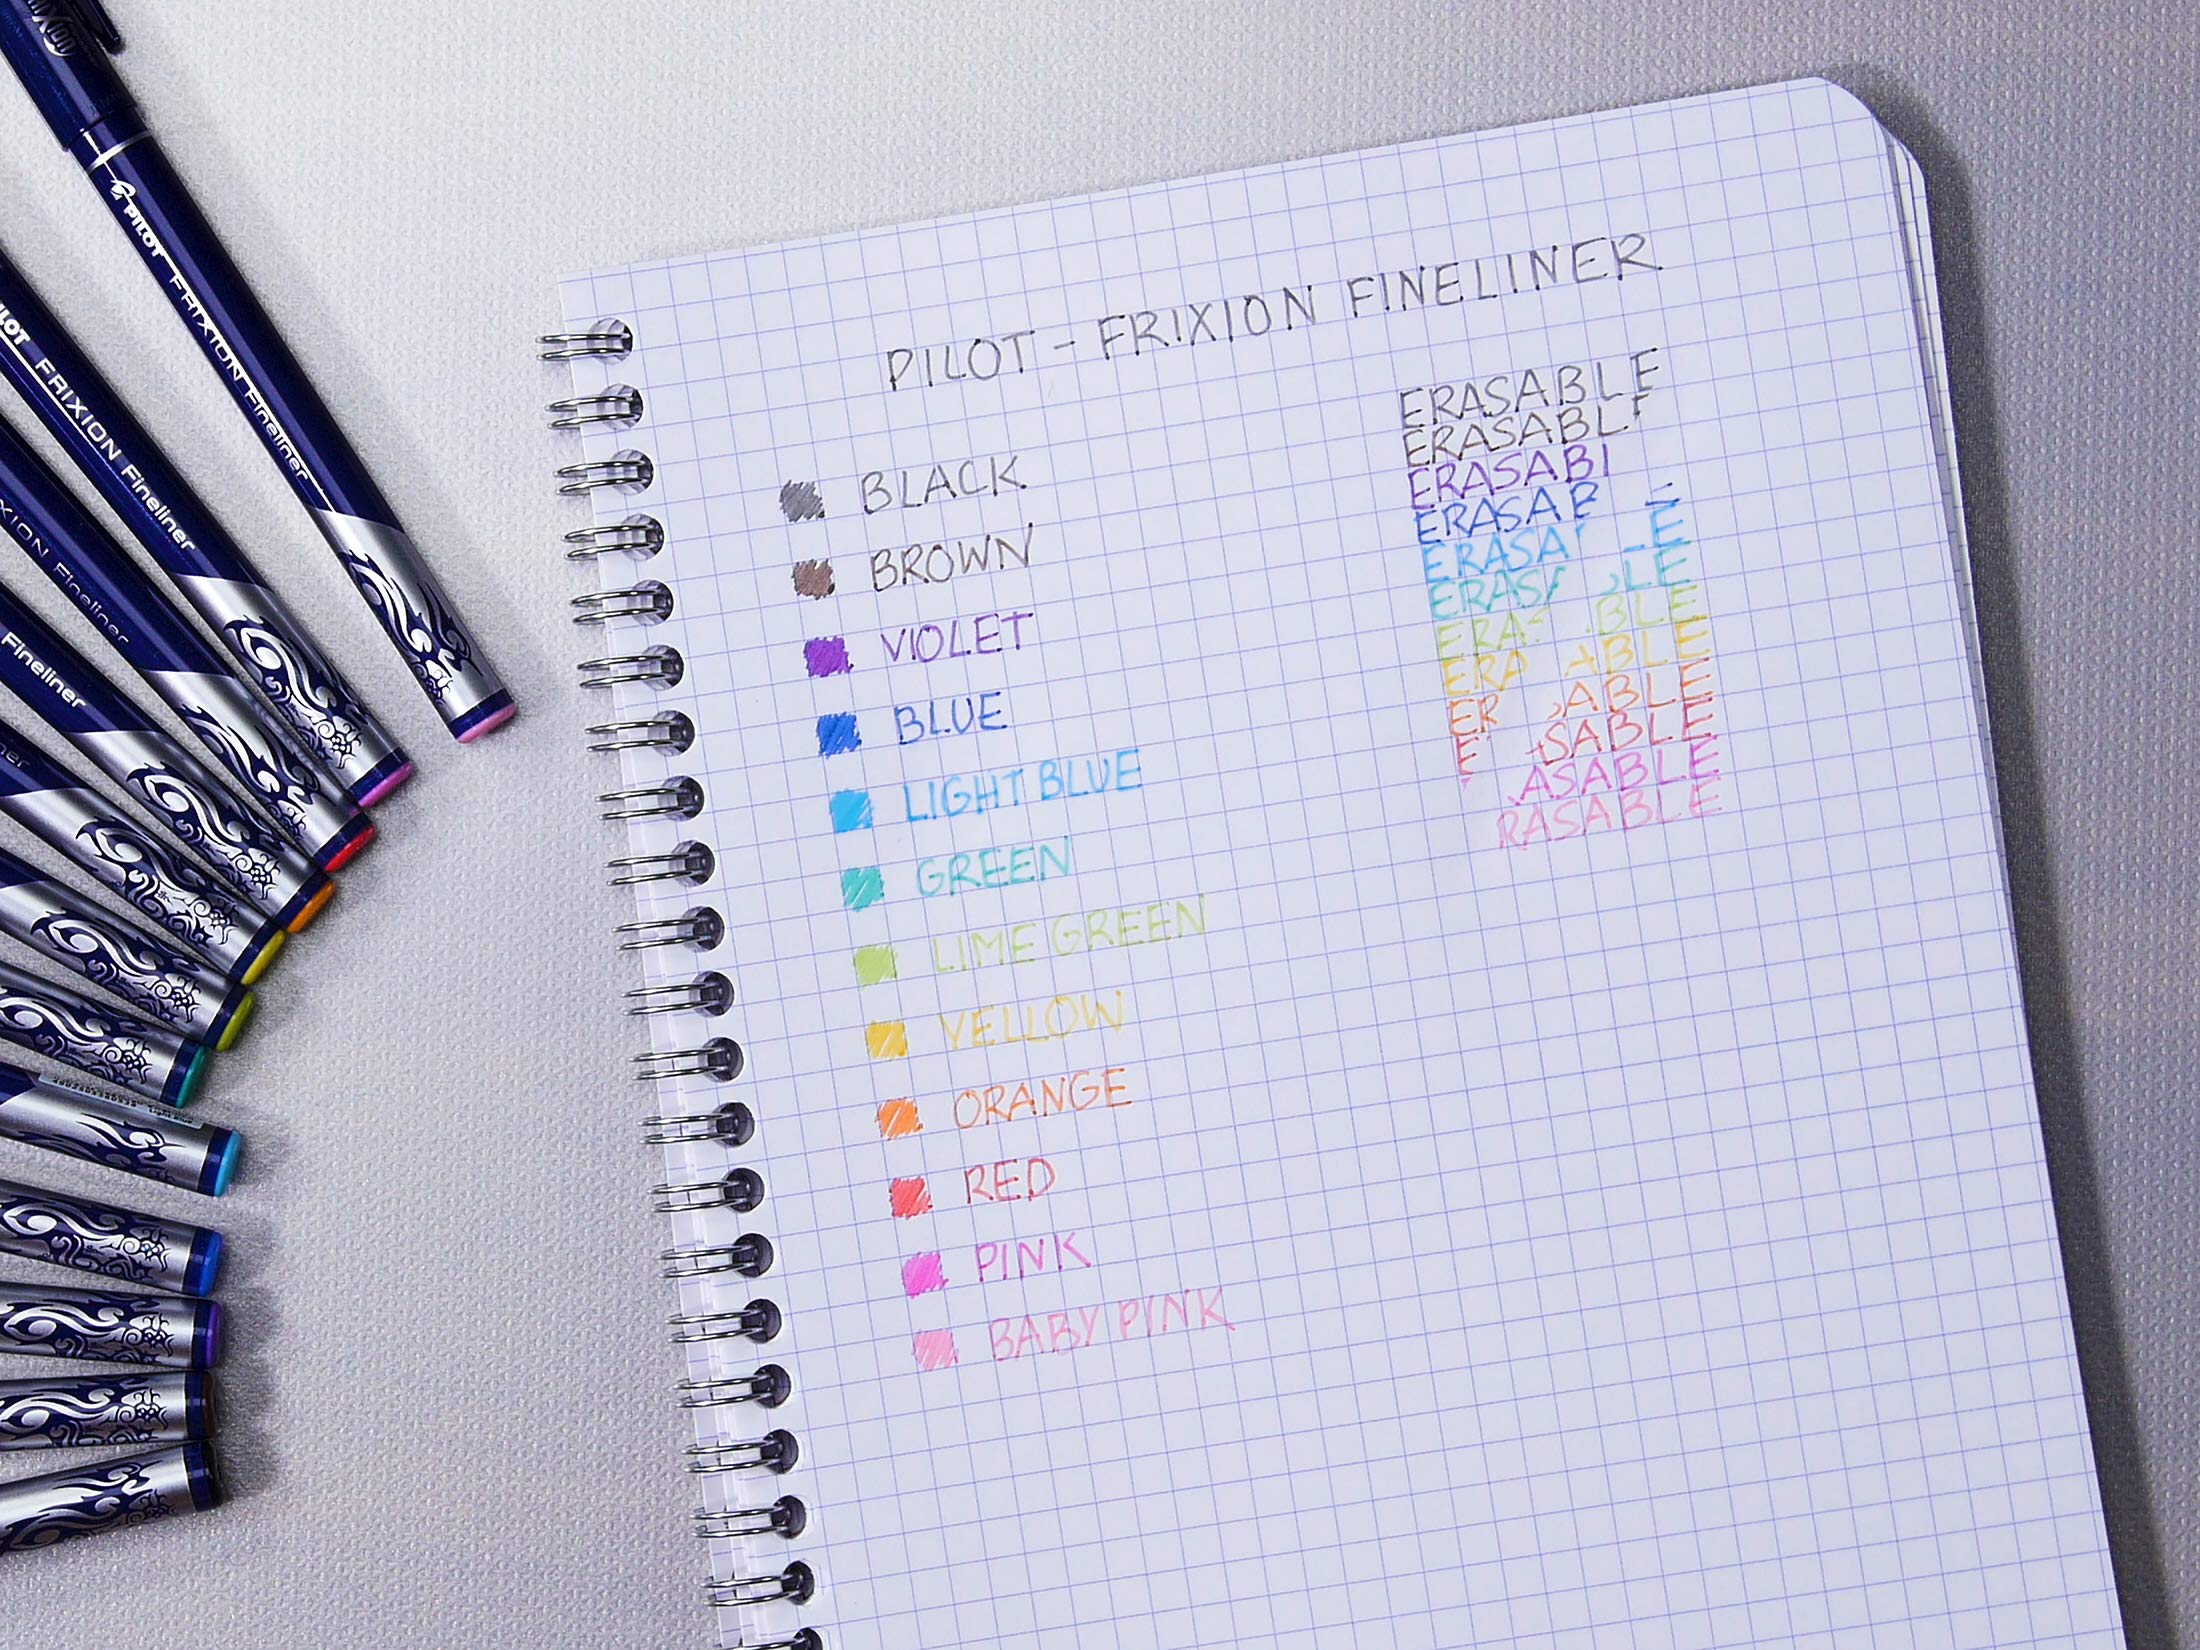 PILOT FRIXION Fineliner
PILOT FRIXION Fineliner
FRIXION Fineliner
Fineliner
PILOT - FRIXION FINELINER
BLACK
BROWN
VIOLET
BLUE
LIGHT BLUE
GREEN
LIME GREEN
YELLOW
ORANGE
RED
PINK
BABY PINK
ERASABLE
ERASABLE
ERASABL
ERASAB E
ERASA LE
ERAS BLE
ERA BLE
ERA ABLE
ER ABLE
E SABLE
ASABLE
RASABLE